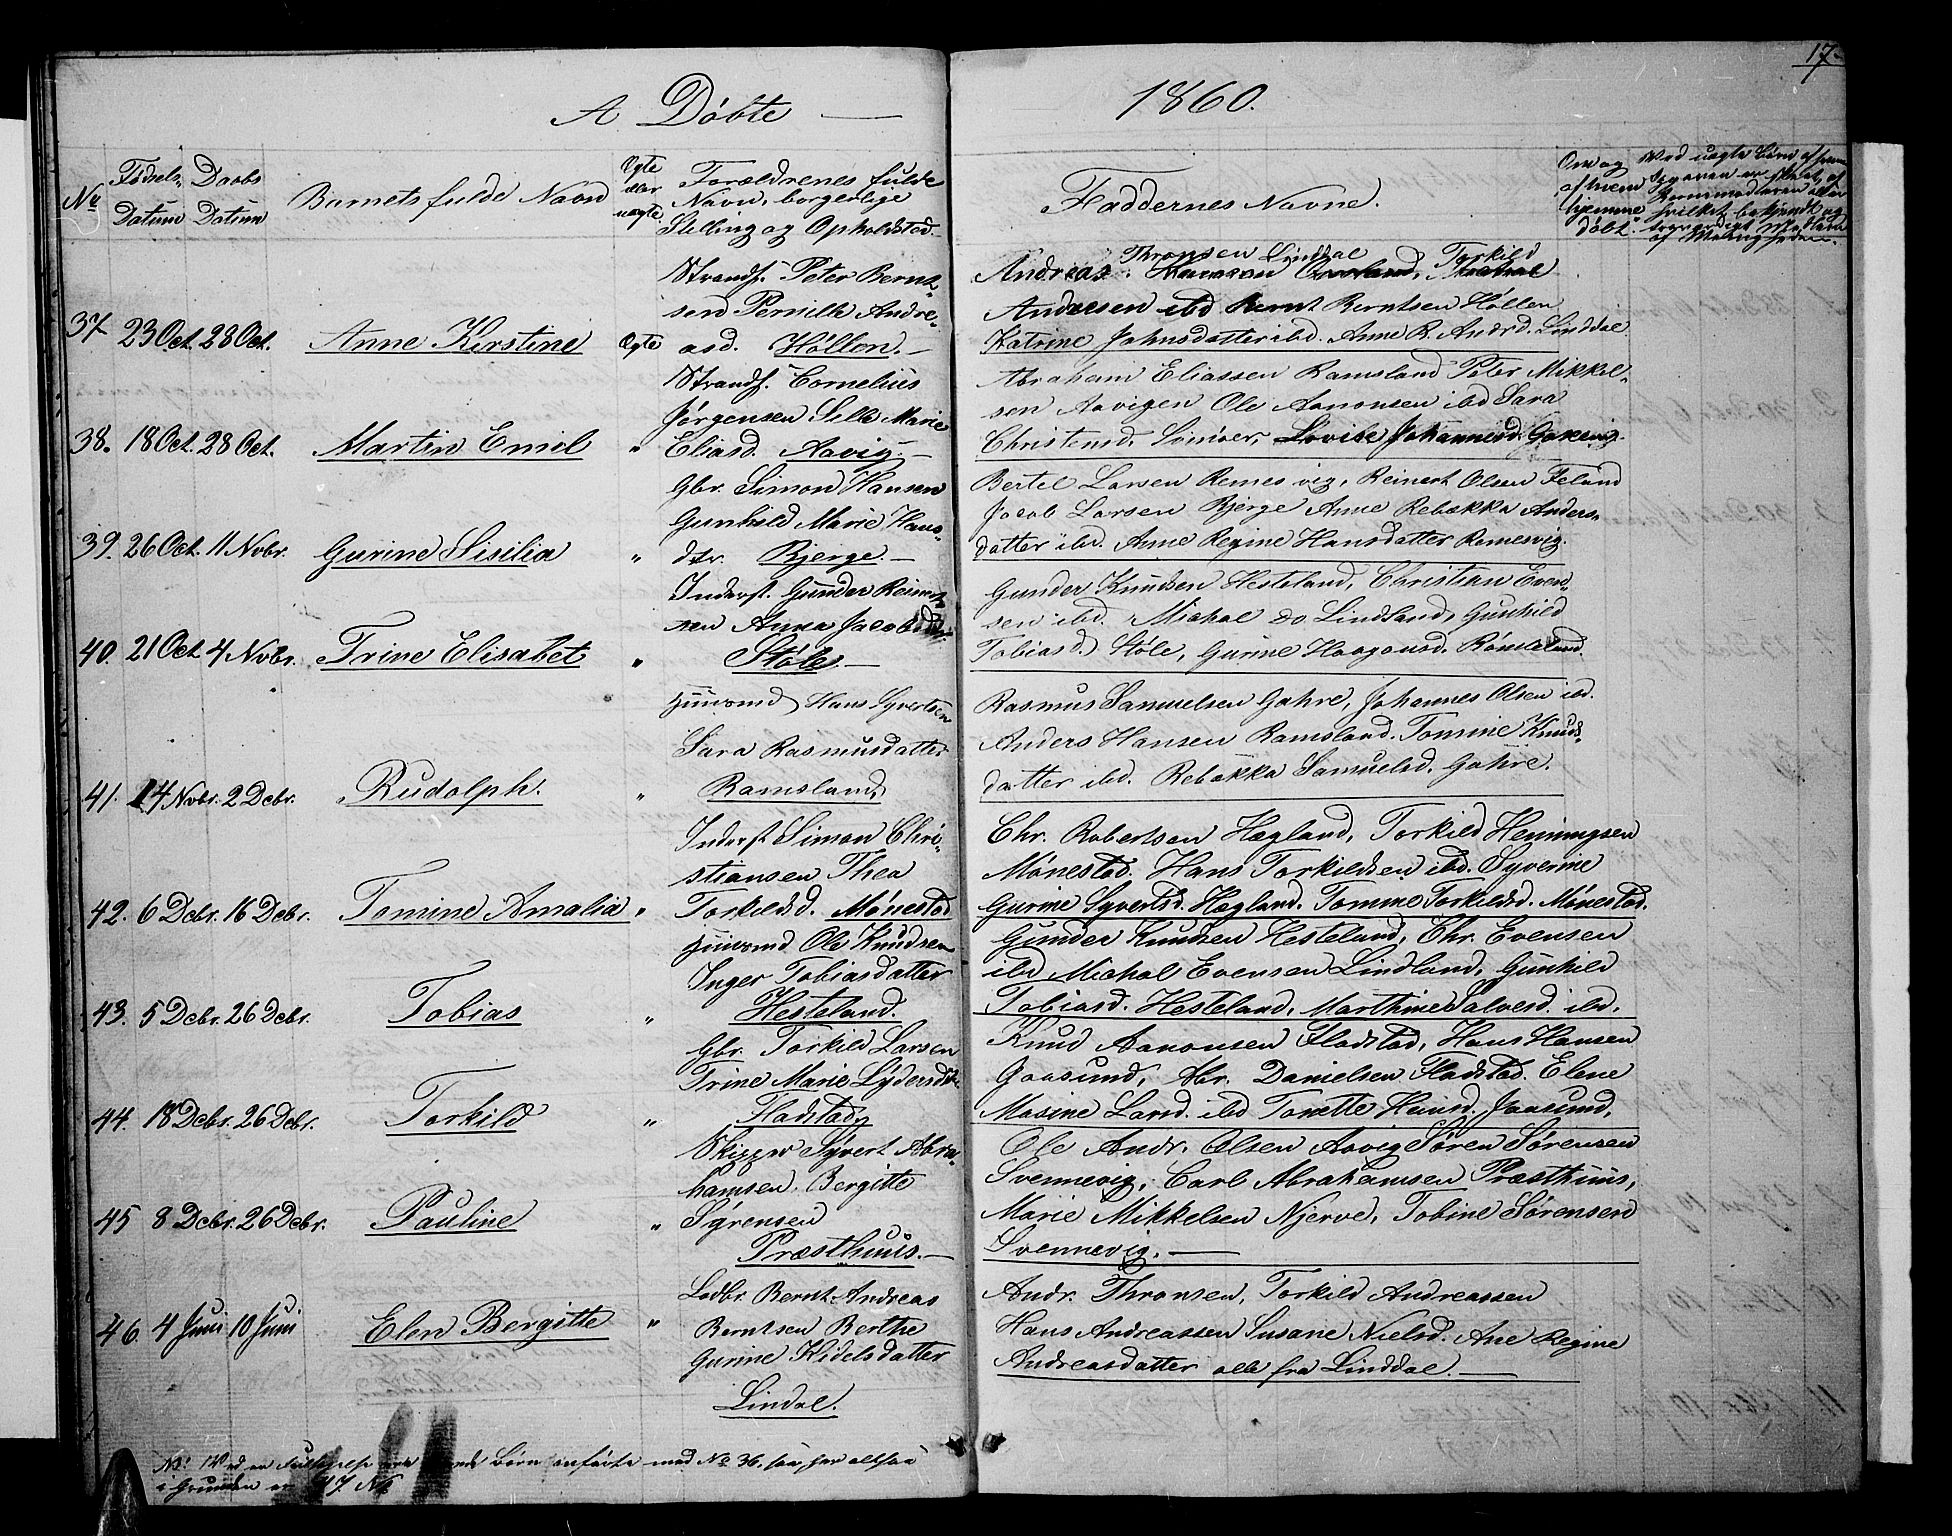 17
A Døbte — 1860.
No
Fødsels Datum
Daabs Datum
Barnets fulde Navn
Ægte eller uægte
Forældrenes fulde Navn, borgerlige Stilling og Opholdsted
Faddernes Navne.
Om og af hvem hjemme døbt.
37 23 Oct. 28 Oct. Anne Kirstine Ægte
Strandf. Peter Bernt-
sen Pernille Andre-
asd. Höllen. —
Andreas Thronsen Linddal Torkild
Andersen ibd Bernt Berntsen Höllen
Katrine Jahnsdatter ibd. Anne R. Andrd. Linddal
38. 18 Oct. 28 Oct. Martin Emil "
Strandf. Cornelius
Jørgensen Sille Marie
Eliasd. Aavig. —
Abraham Eliassen Ramsland Peter Mikkel-
sen Aavigen Ole Aanonsen ibd Sara
Christensd. Lovise Johannesd.
39. 26 Oct. 11 Nvbr. Gurine Sisilia "
Gbr. Simon Hansen
Gunhild Marie Hans-
dtr. Bjerge. —
Bertel Larsen Remesvig, Reinert Olsen Feland
Jacob Larsen Bjerge Anne Rebækka Anders-
datter ibd. Anne Regine Hansdatter Remesvig.
40. 21 Oct. 4 Nvbr. Trine Elisabet "
Inderst. Gunder Reinert-
sen Anna Jacobsd.
Støle —
Gunder Knudsen Hesteland, Christian Even-
sen ibd. Michal do Lindland, Gunhild
Tobiasd. Støle, Gurine Haagensd. Rømteland.
41. 14 Nvbr. 2 Debr. Rudolph. "
Huusmd Hans Syvertsen
Sara Rasmusdatter
Ramsland
Rasmus Samuelsen Gahre, Johannes Olsen ibd.
Anders Hansen Ramsland. Tomine Knuds-
datter ibd. Rebækka Samuelsd. Gahre.
42. 6 Debr. 16 Debr. Tomine Amalia "
Inderst Simon Chri-
stiansen Thea
Torkildsd. Mønestad
Chr. Robertsen Hægland, Torkild Hemingsen
Mønestad. Hans Torkildsen ibd. Syverine
Gurine Syvertsd. Hægland. Tomine Torkildsd. Mønestad.
43. 5 Debr. 26 Debr. Tobias "
Huusmd Ole Knudsen
Inger Tobiasdatter
Hesteland.
Gunder Knudsen Hesteland, Chr. Evensen
ibd Michal Evensen Lindland, Gunhild
Tobiasd. Hesteland, Marthine Salvesd. ibd.
44. 18 Debr. 26 Debr. Torkild "
Gbr. Torkild Larsen
Trine Marie Lydersdtr
Fladstad
Knud Aanonsen Fladstad, Hans Hansen
Gaasund, Abr. Danielsen Fladstad. Elene
Masine Larsd. ibd Tonette Hansd. Jaasund,
45 8 Debr. 26 Debr. Pauline "
Skipper Syvert Abra-
hamsen. Bergitte
Sørensen
Præsthuus. —
Ole Andr. Olsen Aavig Søren Sørensen
Svennevig, Carl Abrahamsen Præsthuus,
Marie Mikkelsen Njerve, Tobine Sørensen
Svennevig. —
46. 4 Juni 10 Juni Elen Bergitte "
Lodbr. Bernt Andreas
Berntsen Berthe
Gurine Kidelsdatter
Lindal.
Andr. Thronsen, Torkild Andreassen
Hans Andreassen Susane Nielsd. Ane Regine
Andreasdatter alle fra Linddal. —
NB: Ved en Børn anførte med No 36, saa altsaa
i Grunden er 47 No